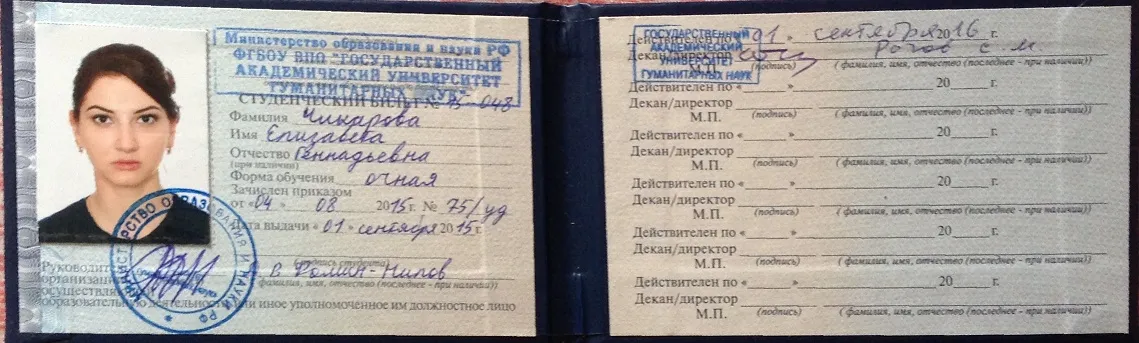 Министерство образования и науки РФ
ФГБОУ ВПО "ГОСУДАРСТВЕННЫЙ
АКАДЕМИЧЕСКИЙ УНИВЕРСИТЕТ
ГУМАНИТАРНЫХ НАУК"
СТУДЕНЧЕСКИЙ БИЛЕТ № 75-043
Фамилия Чикарова
Имя Елизавета
Отчество Геннадьевна
(при наличии)
Форма обучения очная
Зачислен приказом
от «04» 08 2015г. № 75/уд
Дата выдачи «01» сентября 2015г.
(подпись студента)
Руководитель
организации
осуществляющей
образовательную деятельность или иное уполномоченное им должностное лицо
(фамилия, имя, отчество (последнее - при наличии))
МИНИСТЕРСТВО ОБРАЗОВАНИЯ И НАУКИ РФ
ГОСУДАРСТВЕННЫЙ
АКАДЕМИЧЕСКИЙ
УНИВЕРСИТЕТ
ГУМАНИТАРНЫХ НАУК
Действителен по «01» сентября 2016 г.
Декан/директор Рогов С. М
М.П. (подпись) (фамилия, имя, отчество (последнее - при наличии))
Действителен по «____» ____ 20____ г.
Декан/директор
М.П. (подпись) (фамилия, имя, отчество (последнее - при наличии))
Действителен по «____» ____ 20____ г.
Декан/директор
М.П. (подпись) (фамилия, имя, отчество (последнее - при наличии))
Действителен по «____» ____ 20____ г.
Декан/директор
М.П. (подпись) (фамилия, имя, отчество (последнее - при наличии))
Действителен по «____» ____ 20____ г.
Декан/директор
М.П. (подпись) (фамилия, имя, отчество (последнее - при наличии))
Действителен по «____» ____ 20____ г.
Декан/директор
М.П. (подпись) (фамилия, имя, отчество (последнее - при наличии))